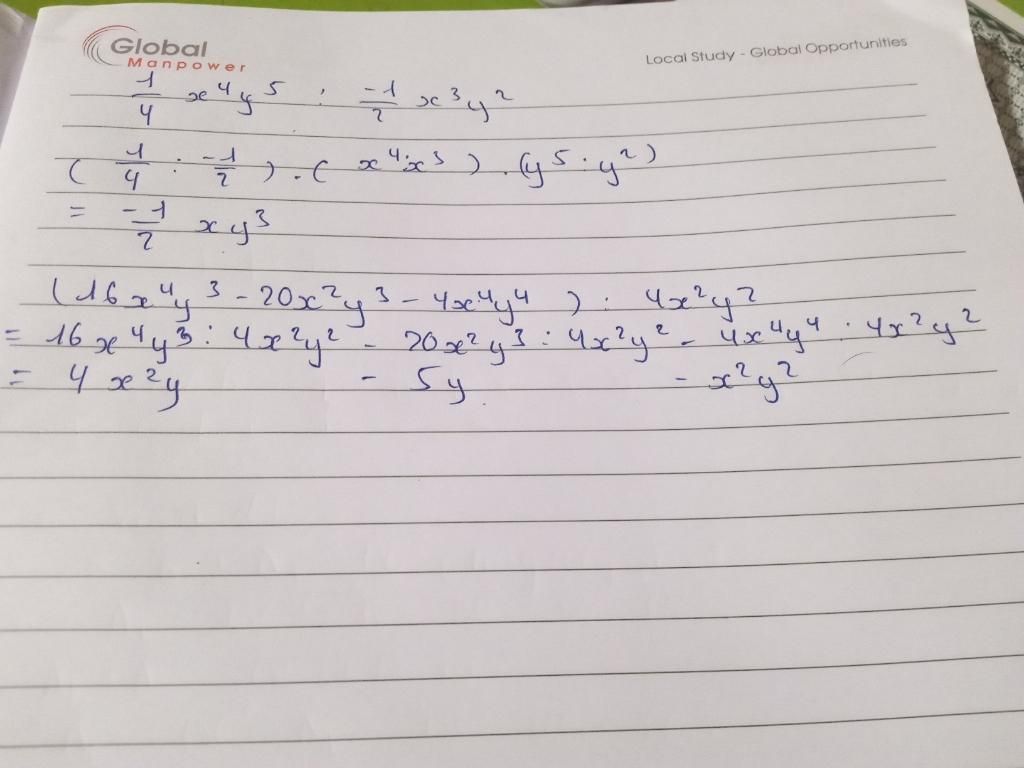 Global
Manpower
Local Study - Global Opportunities
1/4 x⁴y⁵ : -1/2 x³y²
( 1/4 : -1/2 ) . ( x⁴:x³ ) . (y⁵ : y²)
= -1/2 xy³
(16x⁴y³ - 20x²y³ - 4x⁴y⁴ ) : 4x²y²
= 16x⁴y³ : 4x²y² - 20x²y³ : 4x²y² - 4x⁴y⁴ : 4x²y²
= 4x²y - 5y - x²y²